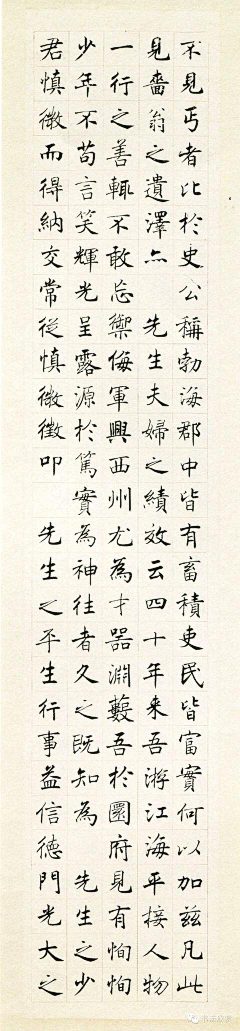 不見丐者比於史公稱勃海郡中皆有畜積吏民皆富實何以加兹凡此
見嗇翁之遺澤亦 先生夫婦之績效云四十年来吾游江海平接人物
一行之善輒不敢忘禦侮軍興西州尤為才器淵藪吾於圜府見有恂恂
少年不苟言笑輝光呈露源於篤實為神往者久之既知為 先生之少
君慎微而得納交常從慎微徵叩 先生之平生行事益信德門光大之